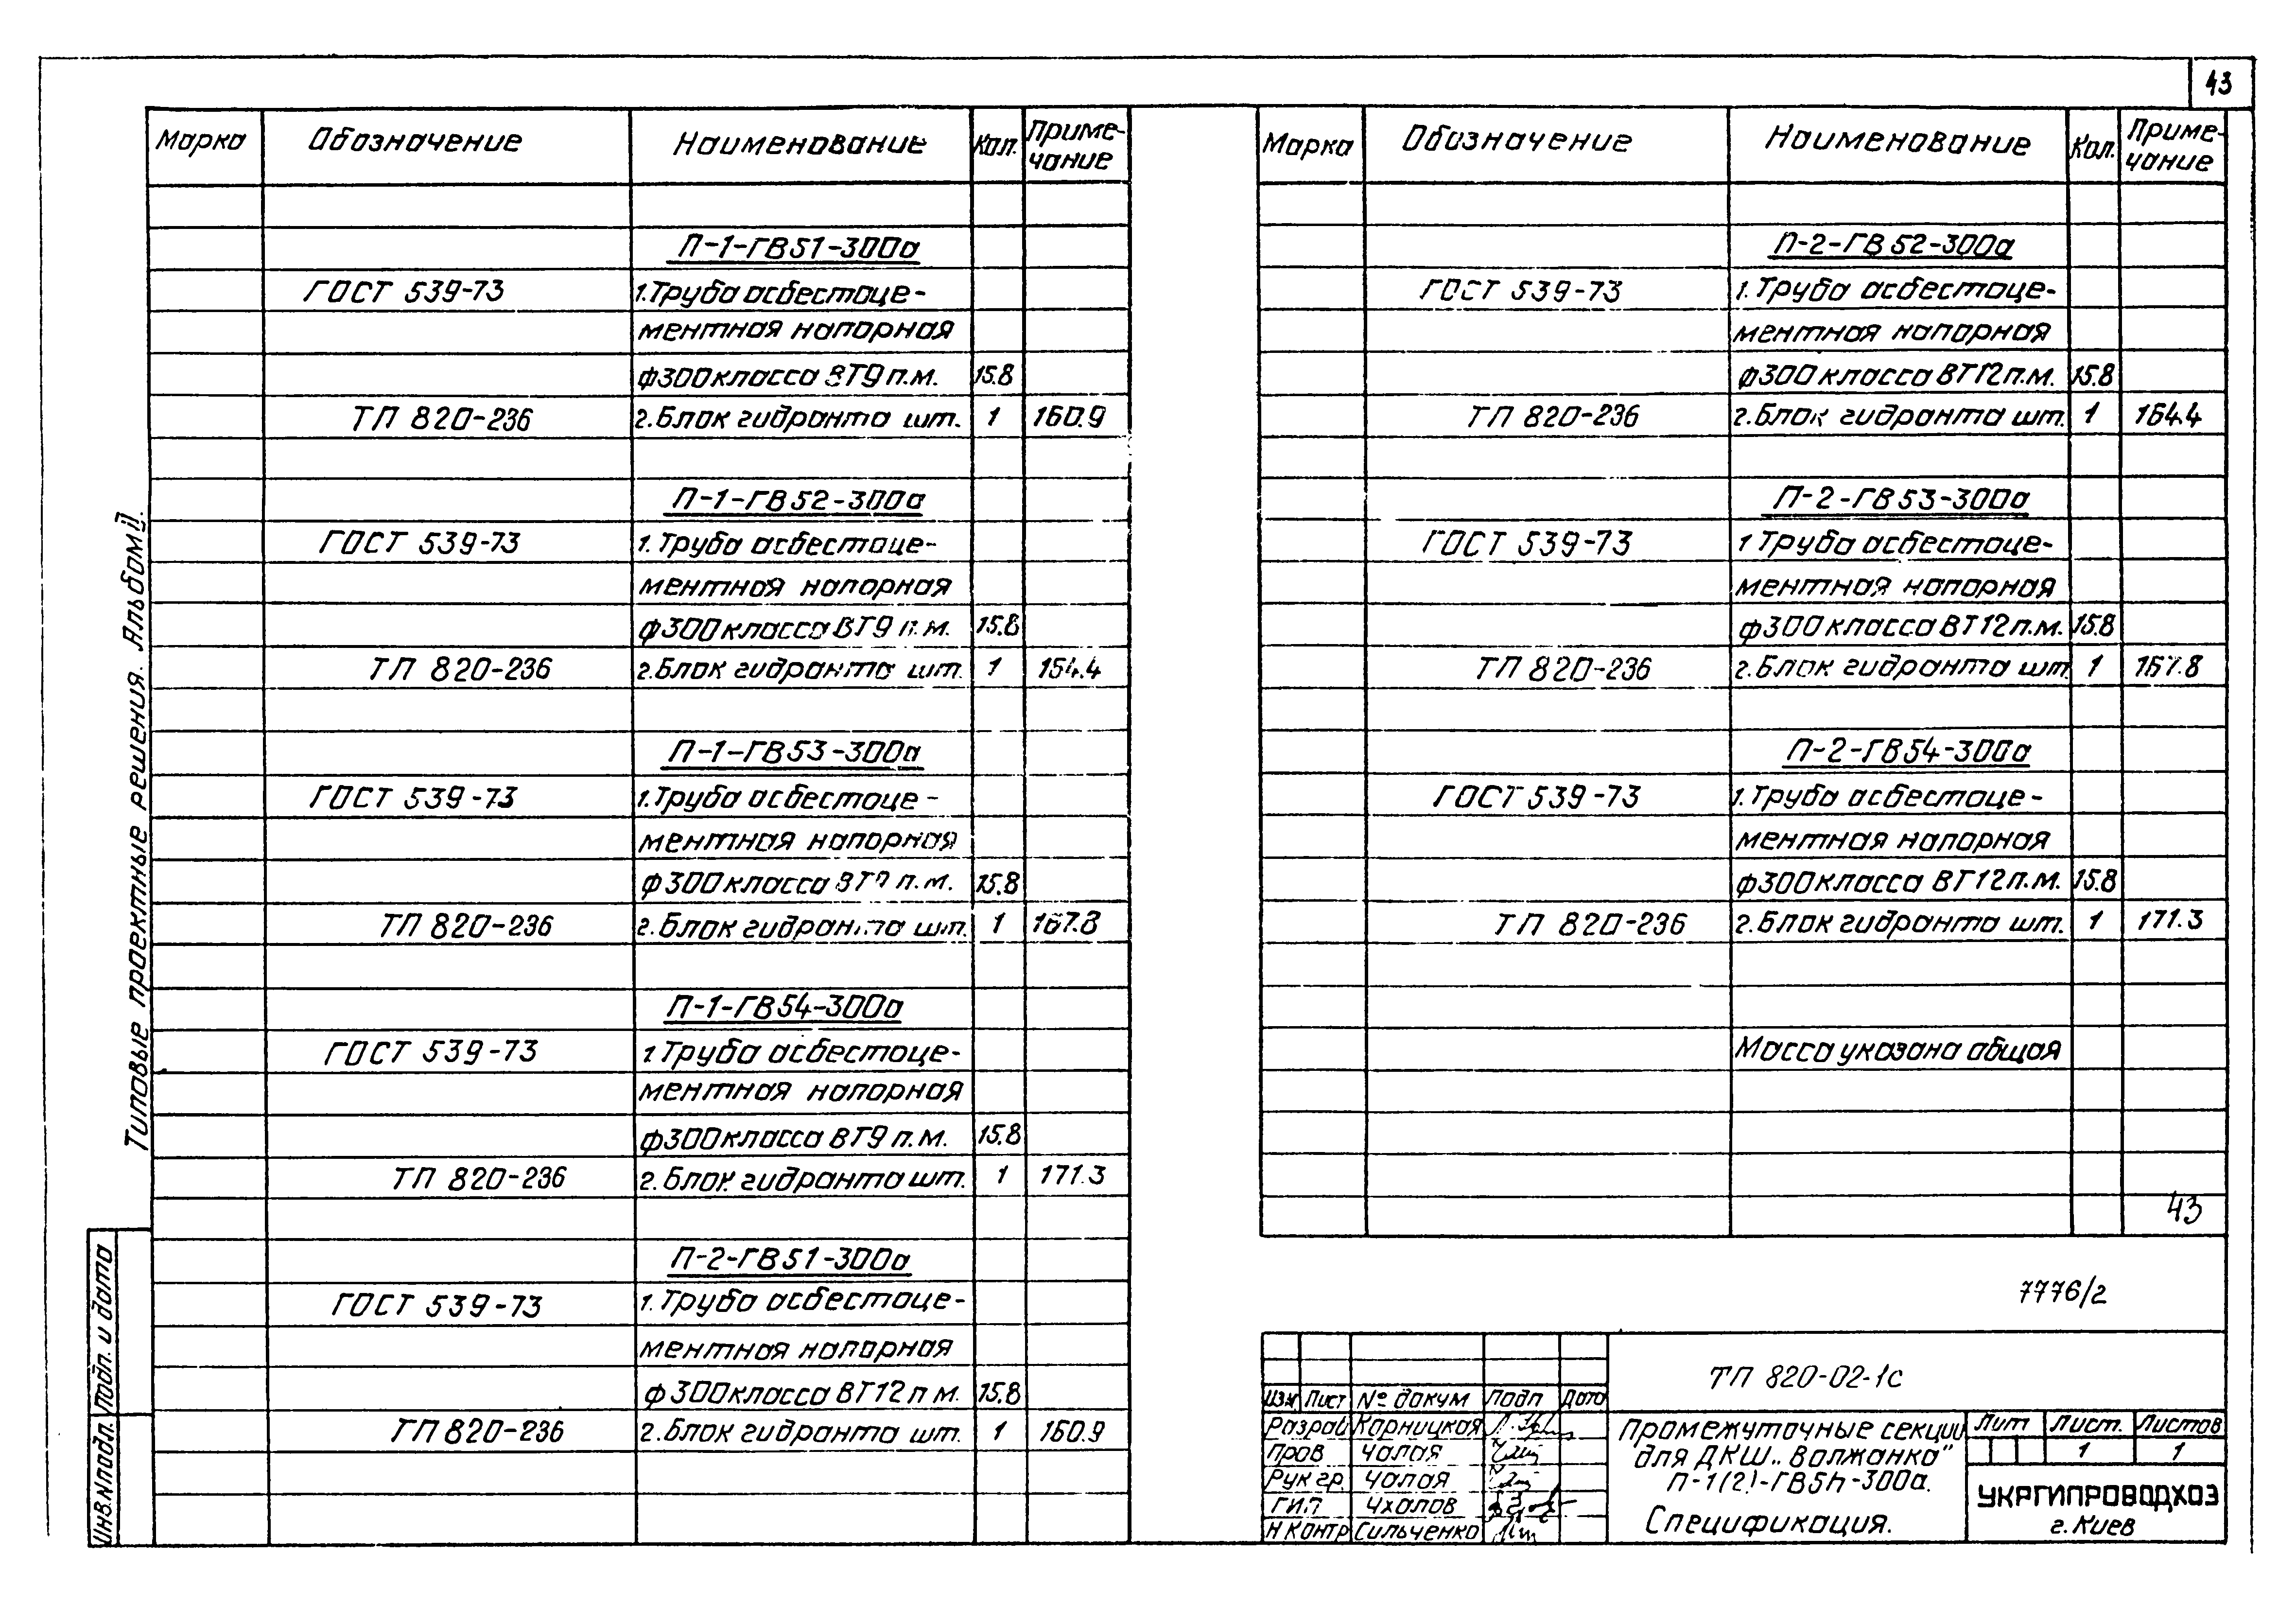 43
Марка Обозначение Наименование Кол. Приме-
чание
П-1-ГВ51-300а
ГОСТ 539-73 1.Труба асбестоце-
ментная напорная
ф300 класса ВТ9 п.м. 15.8
ТП 820-236 2.Блок гидранта шт. 1 160.9
П-1-ГВ52-300а
ГОСТ 539-73 1.Труба асбестоце-
ментная напорная
ф300 класса ВТ9 п.м. 15.8
ТП 820-236 2.Блок гидранта шт. 1 164.4
П-1-ГВ53-300а
ГОСТ 539-73 1.Труба асбестоце-
ментная напорная
ф300 класса ВТ9 п.м. 15.8
ТП 820-236 2.Блок гидранта шт. 1 167.8
П-1-ГВ54-300а
ГОСТ 539-73 1.Труба асбестоце-
ментная напорная
ф300 класса ВТ9 п.м. 15.8
ТП 820-236 2.Блок гидранта шт. 1 171.3
П-2-ГВ51-300а
ГОСТ 539-73 1.Труба асбестоце-
ментная напорная
ф300 класса ВТ12 п м. 15.8
ТП 820-236 2.Блок гидранта шт. 1 160.9
Марка Обозначение Наименование Кол. Приме-
чание
П-2-ГВ52-300а
ГОСТ 539-73 1.Труба асбестоце-
ментная напорная
ф300 класса ВТ12п.м. 15.8
ТП 820-236 2.Блок гидранта шт. 1 164.4
П-2-ГВ53-300а
ГОСТ 539-73 1 Труба асбестоце-
ментная напорная
ф300 класса ВТ12п.м. 15.8
ТП 820-236 2.Блок гидранта шт 1 167.8
П-2-ГВ54-300а
ГОСТ 539-73 1.Труба асбестоце-
ментная напорная
ф300 класса ВТ12п.м. 15.8
ТП 820-236 2.Блок гидранта шт. 1 171.3
Масса указана общая
43
7776/2
Типовые проектные решения. Альбом II.
Подп. и дата
Инв.Nподл.
ТП 820-02-1с
Изм Лист № докум Подп Дата
Разраб Корницкая
Пров Чалая
Рук гр. Чалая
ГИП Чхалов
Н Контр Сильченко
Промежуточные секции
для ДКШ „Волжанка"
П-1(2)-ГВ5h-300а.
Спецификация.
Лит Лист. Листов
1 1
УКРГИПРОВОДХОЗ
г. Киев